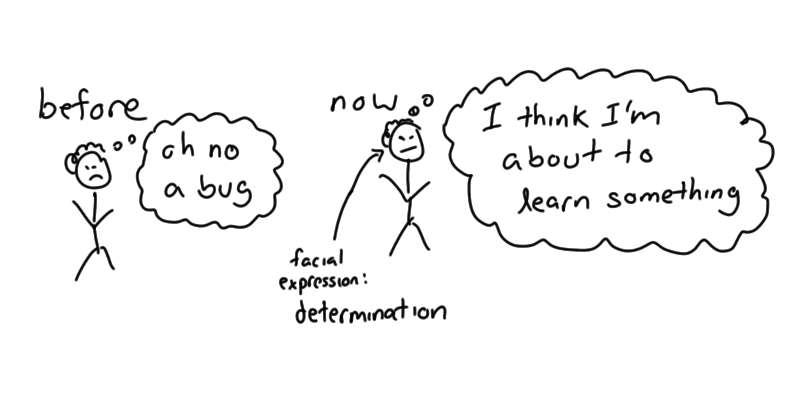 before
oh no
a bug
now
I think I'm
about to
learn something
facial
expression:
determination